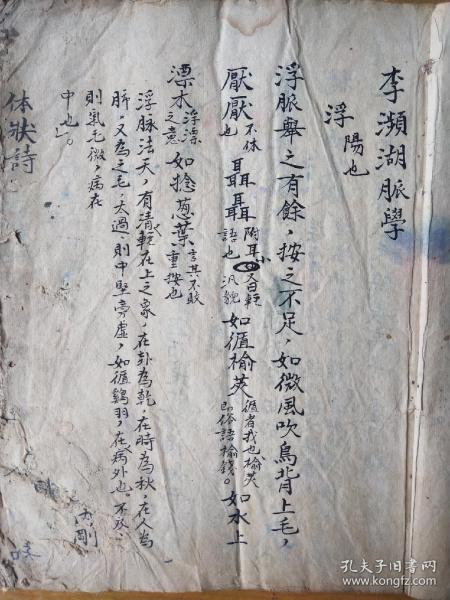 李瀕湖脈學
浮 陽也
浮脈舉之有餘，按之不足，如微風吹鳥背上毛，
厭厭 不休也 聶聶 附耳小語也 又曰輕汎貌 如循榆莢 循者我也榆莢即俗語榆錢。 如水上
漂木 浮漂之意 如捻葱葉 重按也
浮脉法天，有清輕在上之象，在卦為乾，在時為秋，在人為
肺，又為之毛，太過，則中堅旁虛，如循鷄羽，在病外也。不及、
則氣无微，病在
中也」。
体狀詩
孔夫子旧书网
www.kongfz.com